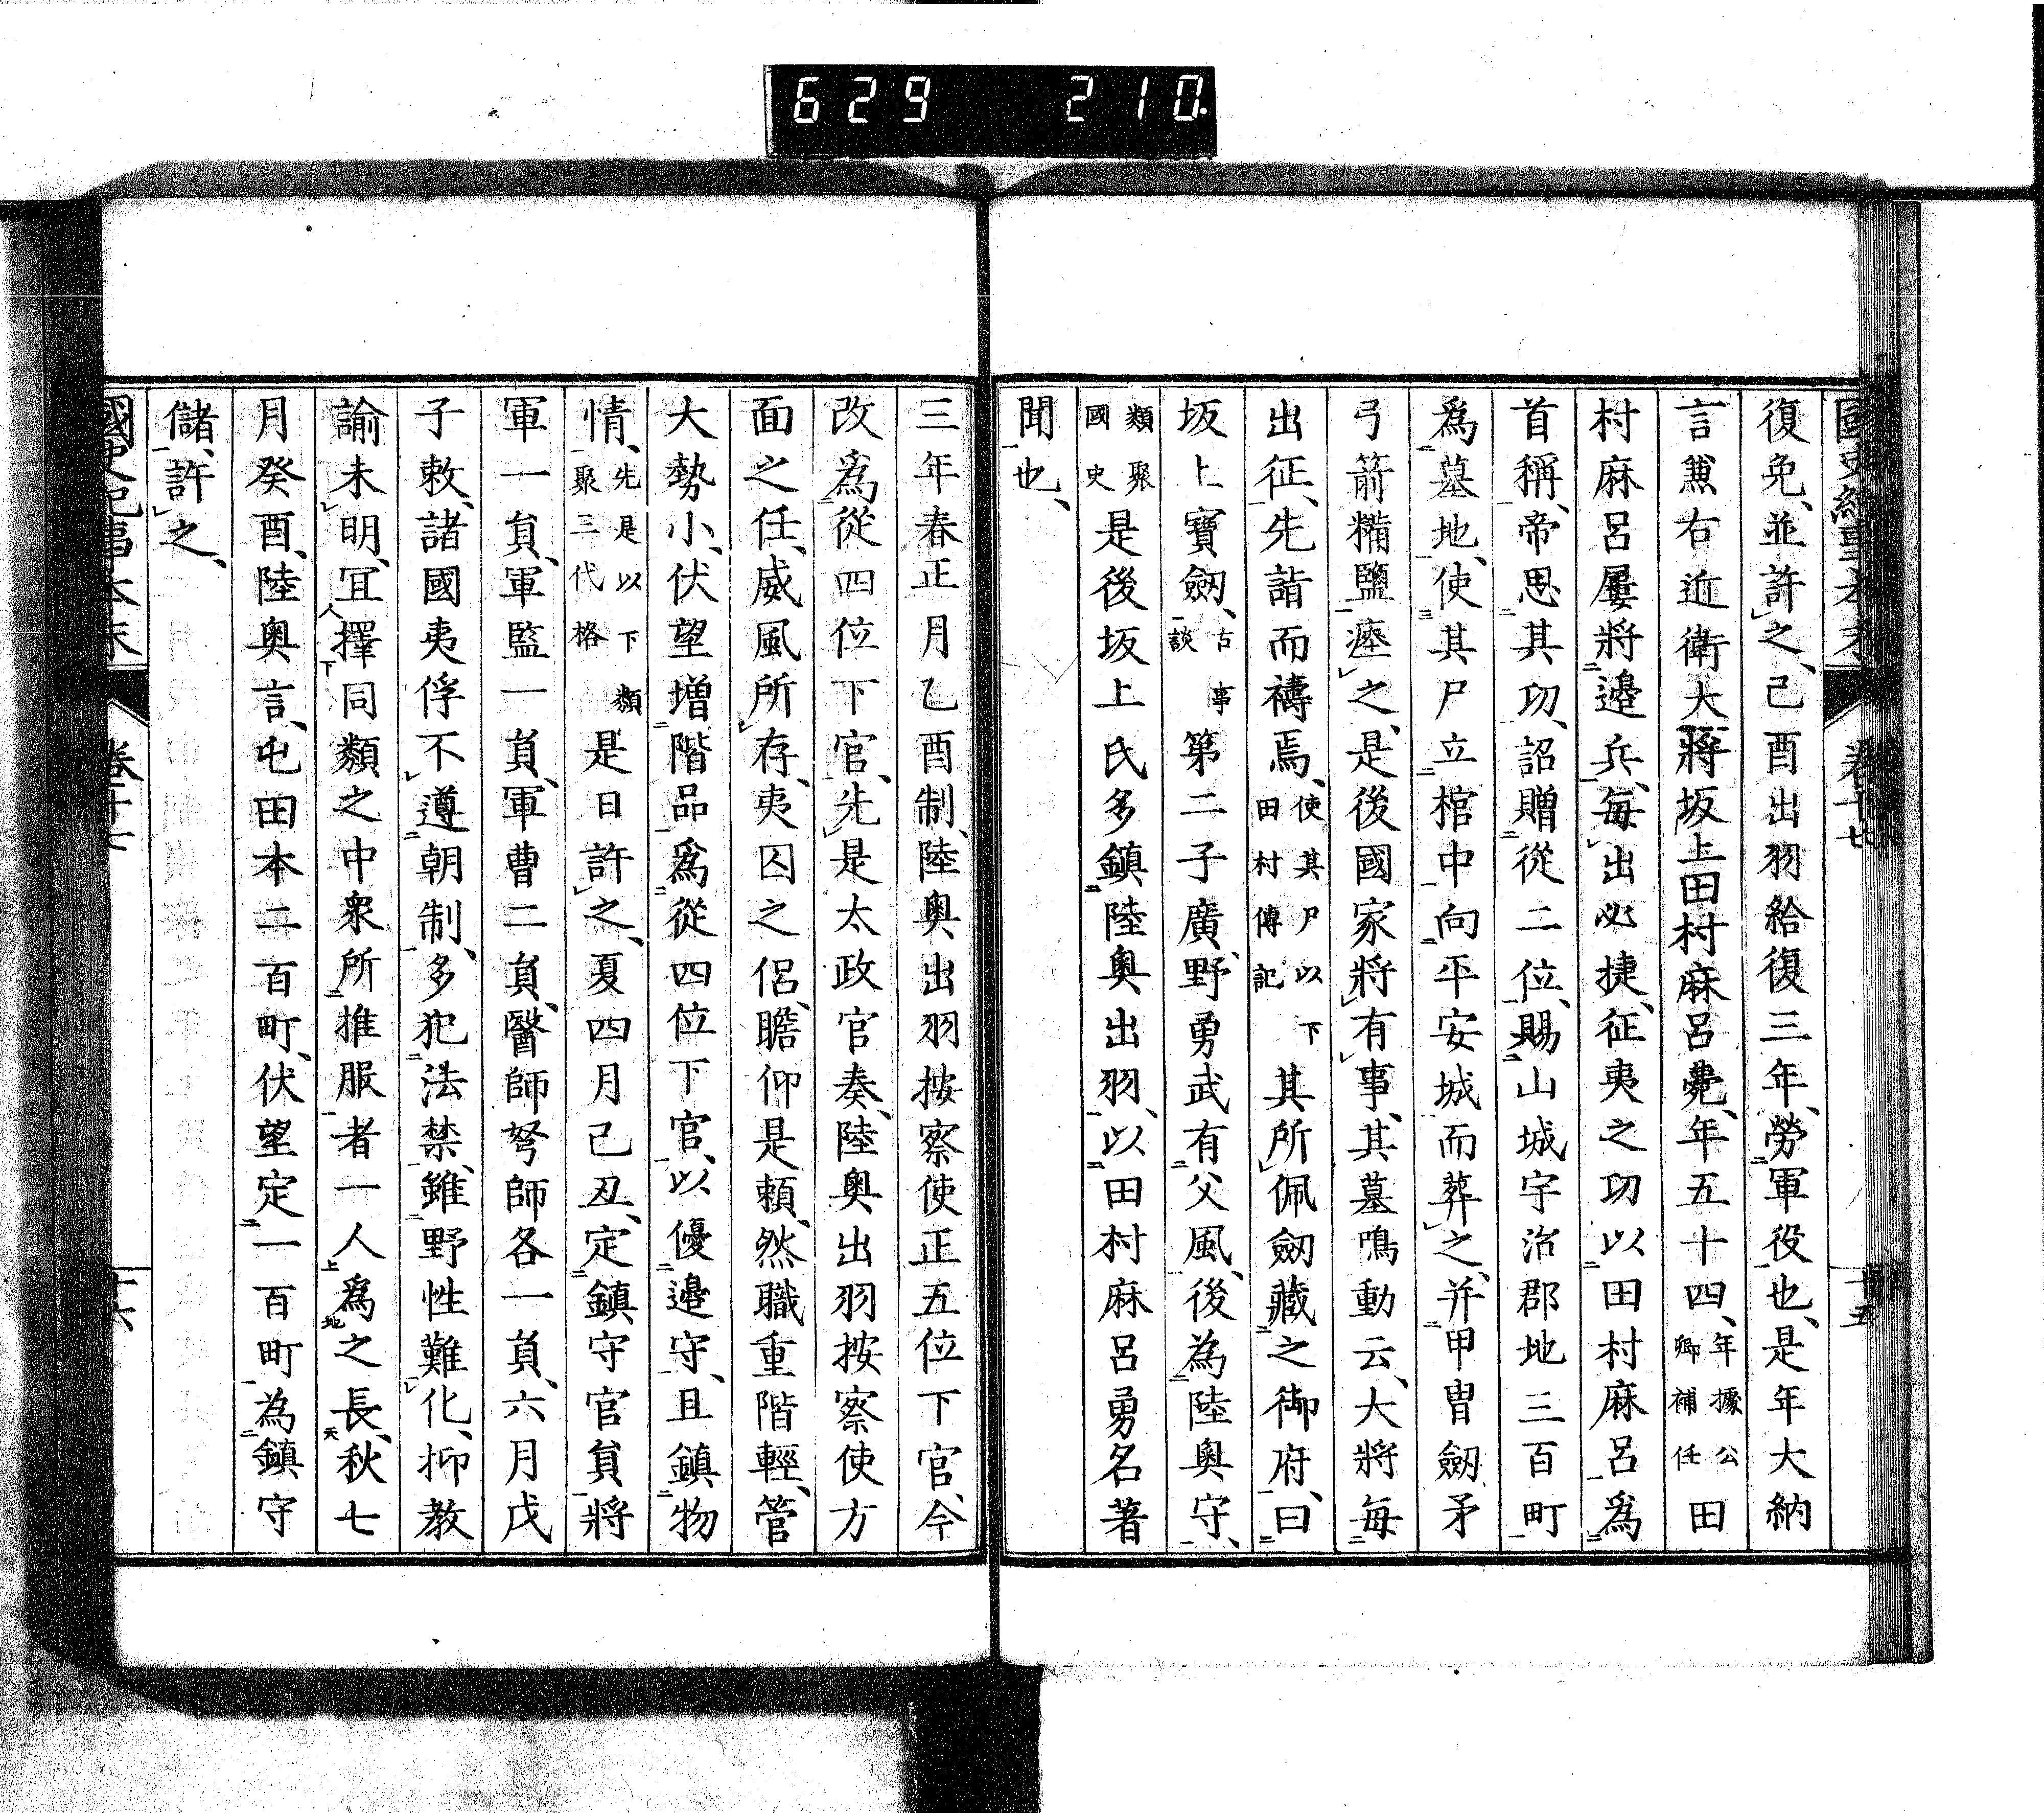 629 210
國史紀事本末 卷十七 十五
復免、並許之、己酉出羽給復三年、勞軍役也、是年大納
言兼右近衛大將坂上田村麻呂薨、年五十四、年據公卿補任田
村麻呂屢將邊兵、每出必捷、征夷之功以田村麻呂爲
首稱、帝思其功、詔贈從二位、賜山城宇治郡地三百町
爲墓地、使其尸立棺中向平安城而葬之、并甲冑劔矛
弓箭糒鹽瘞之、是後國家將有事、其墓鳴動云、大將每
出征、先詣而禱焉、使其尸以下田村傳記其所佩劔藏之御府、曰
坂上寶劔、古事談第二子廣野勇武有父風、後為陸奥守、
類聚國史是後坂上氏多鎮陸奥出羽、以田村麻呂勇名著
聞也、
三年春正月乙酉制、陸奥出羽按察使正五位下官、今
改爲從四位下官、先是太政官奏、陸奥出羽按察使方
面之任、威風所存、夷囚之侶、瞻仰是頼、然職重階輕、管
大勢小、伏望增階品爲從四位下官、以優邊守、且鎮物
情、先是以下類聚三代格是日許之、夏四月己丑、定鎮守官員將
軍一員、軍監一員、軍曹二員、醫師弩師各一員、六月戊
子敕、諸國夷俘不遵朝制、多犯法禁、雖野性難化、抑教
諭未明、冝擇同類之中衆所推服者一人爲之長、秋七
月癸酉、陸奥言、屯田本二百町、伏望定一百町為鎮守
儲、許之、
國史紀事本末 卷十七 十六